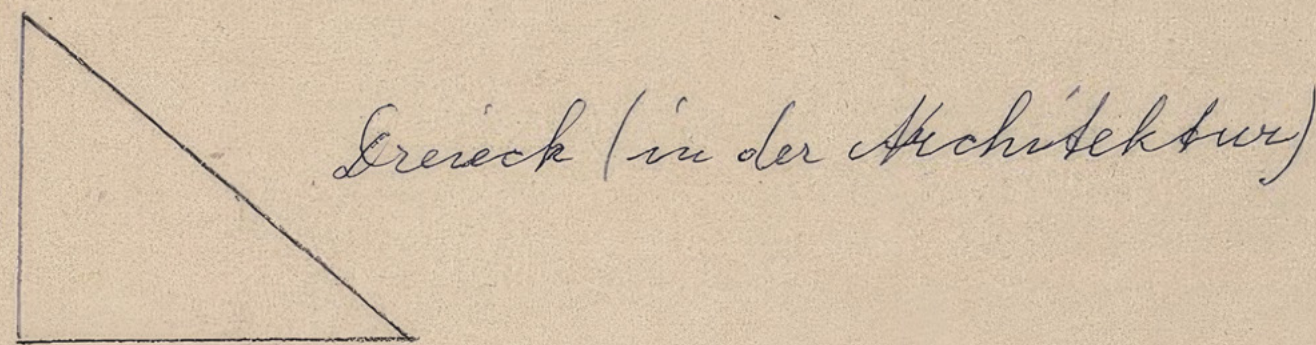 Dreieck (in der Architektur)